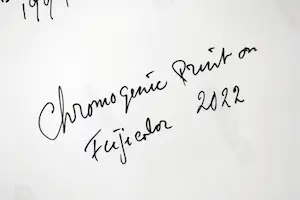 1991
Chromogenic Print on
Fujicolor 2022